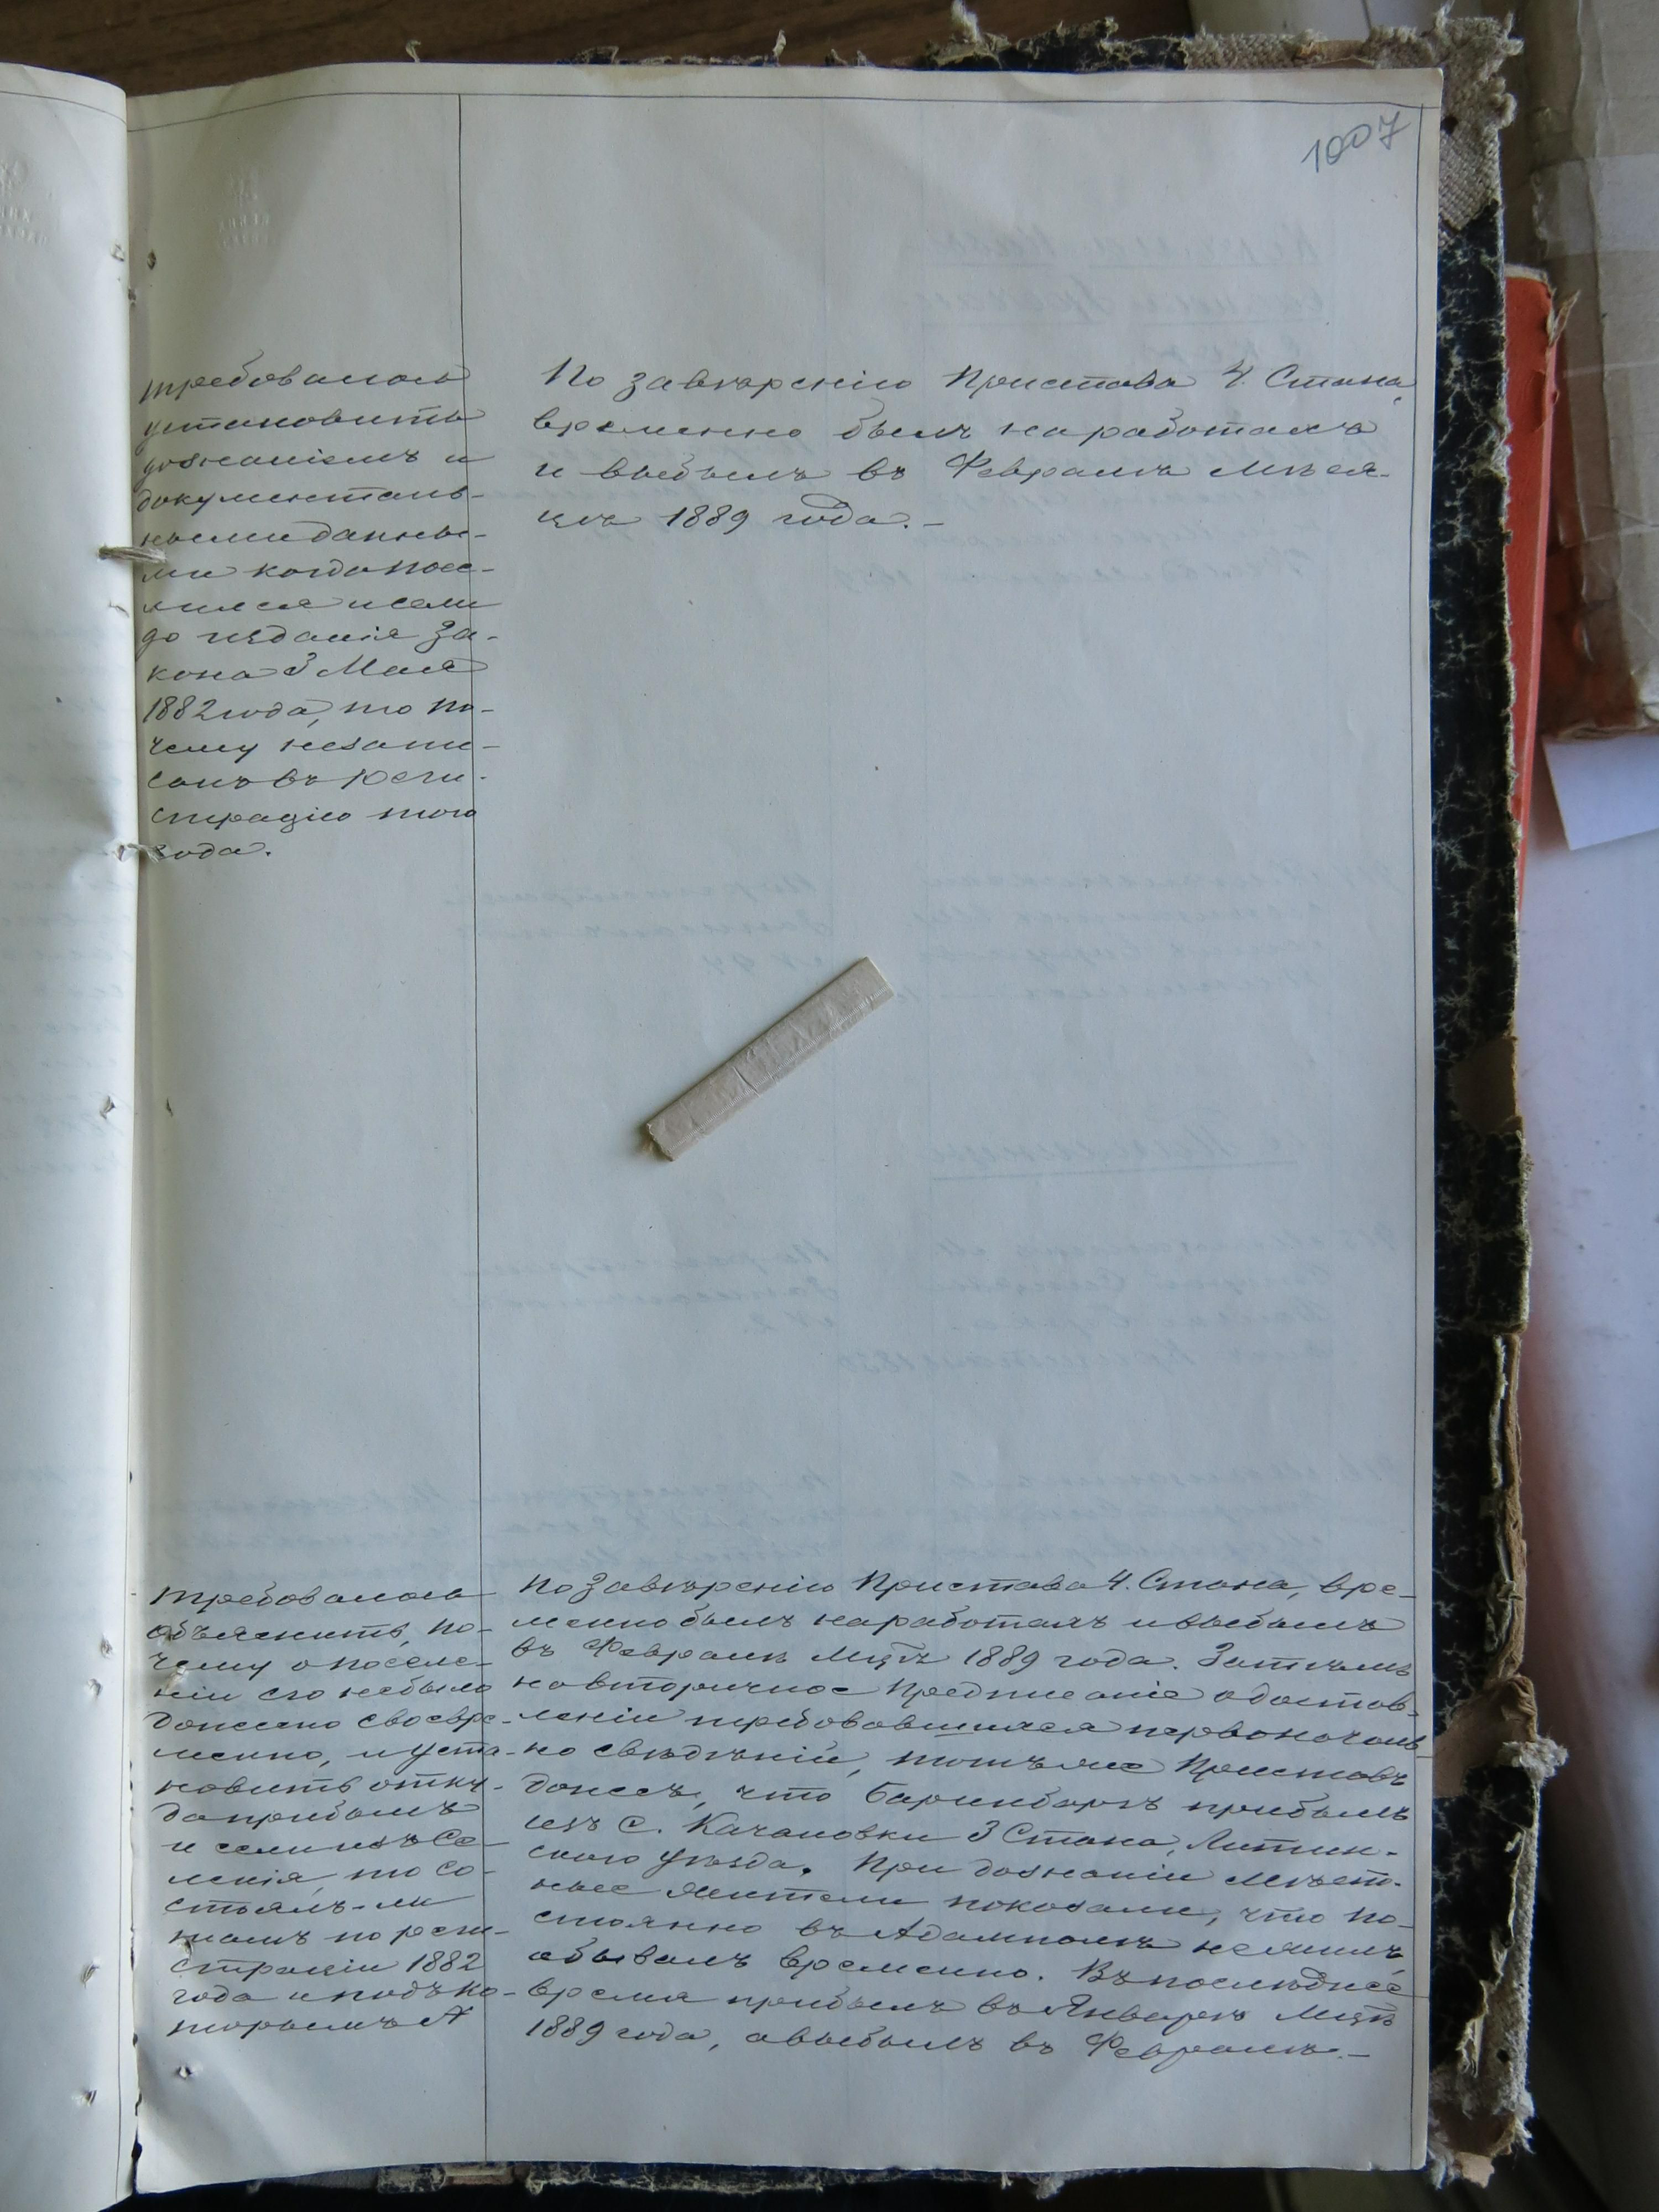 1007
требовалось
установить
дознаніемъ и
документаль-
ными данны-
ми когда посе-
лился и если
до изданія За-
кона 3 Мая
1882 года, то по-
чему незапи-
санъ въ реги-
страцію того
года.
По завѣренію Пристава 4. Стана,
временно былъ на работахъ
и выбылъ въ Февралѣ мѣся-
цѣ 1889 года.-
требовалось
объяснить, по-
чему о поселе-
ніи его небыло
донесено своевре-
менно, и уста-
новить отку-
да прибылъ
и если изъ се-
ленія, то со-
стоялъ-ли
тамъ по реги-
страціи 1882
года и подъ ко-
торымъ №
По завѣренію Пристава 4. Стана, вре-
менно былъ на работахъ и выбылъ
въ Февралѣ Мцѣ 1889 года. Затѣмъ
на вторичное предписаніе о достав-
леніи требовавшихся первоначаль-
но свѣдѣній, тотъ же Приставъ
донесъ, что Баринбергъ прибылъ
изъ с. Качановки 3 Стана, Литин-
скаго уѣзда. При дознаніи мѣст-
ные жители показали, что по-
стоянно въ Адамполѣ не жилъ,
а бывалъ временно. Въ послѣднее
время прибылъ въ Январѣ Мцѣ
1889 года, а выбылъ въ Февралѣ.-